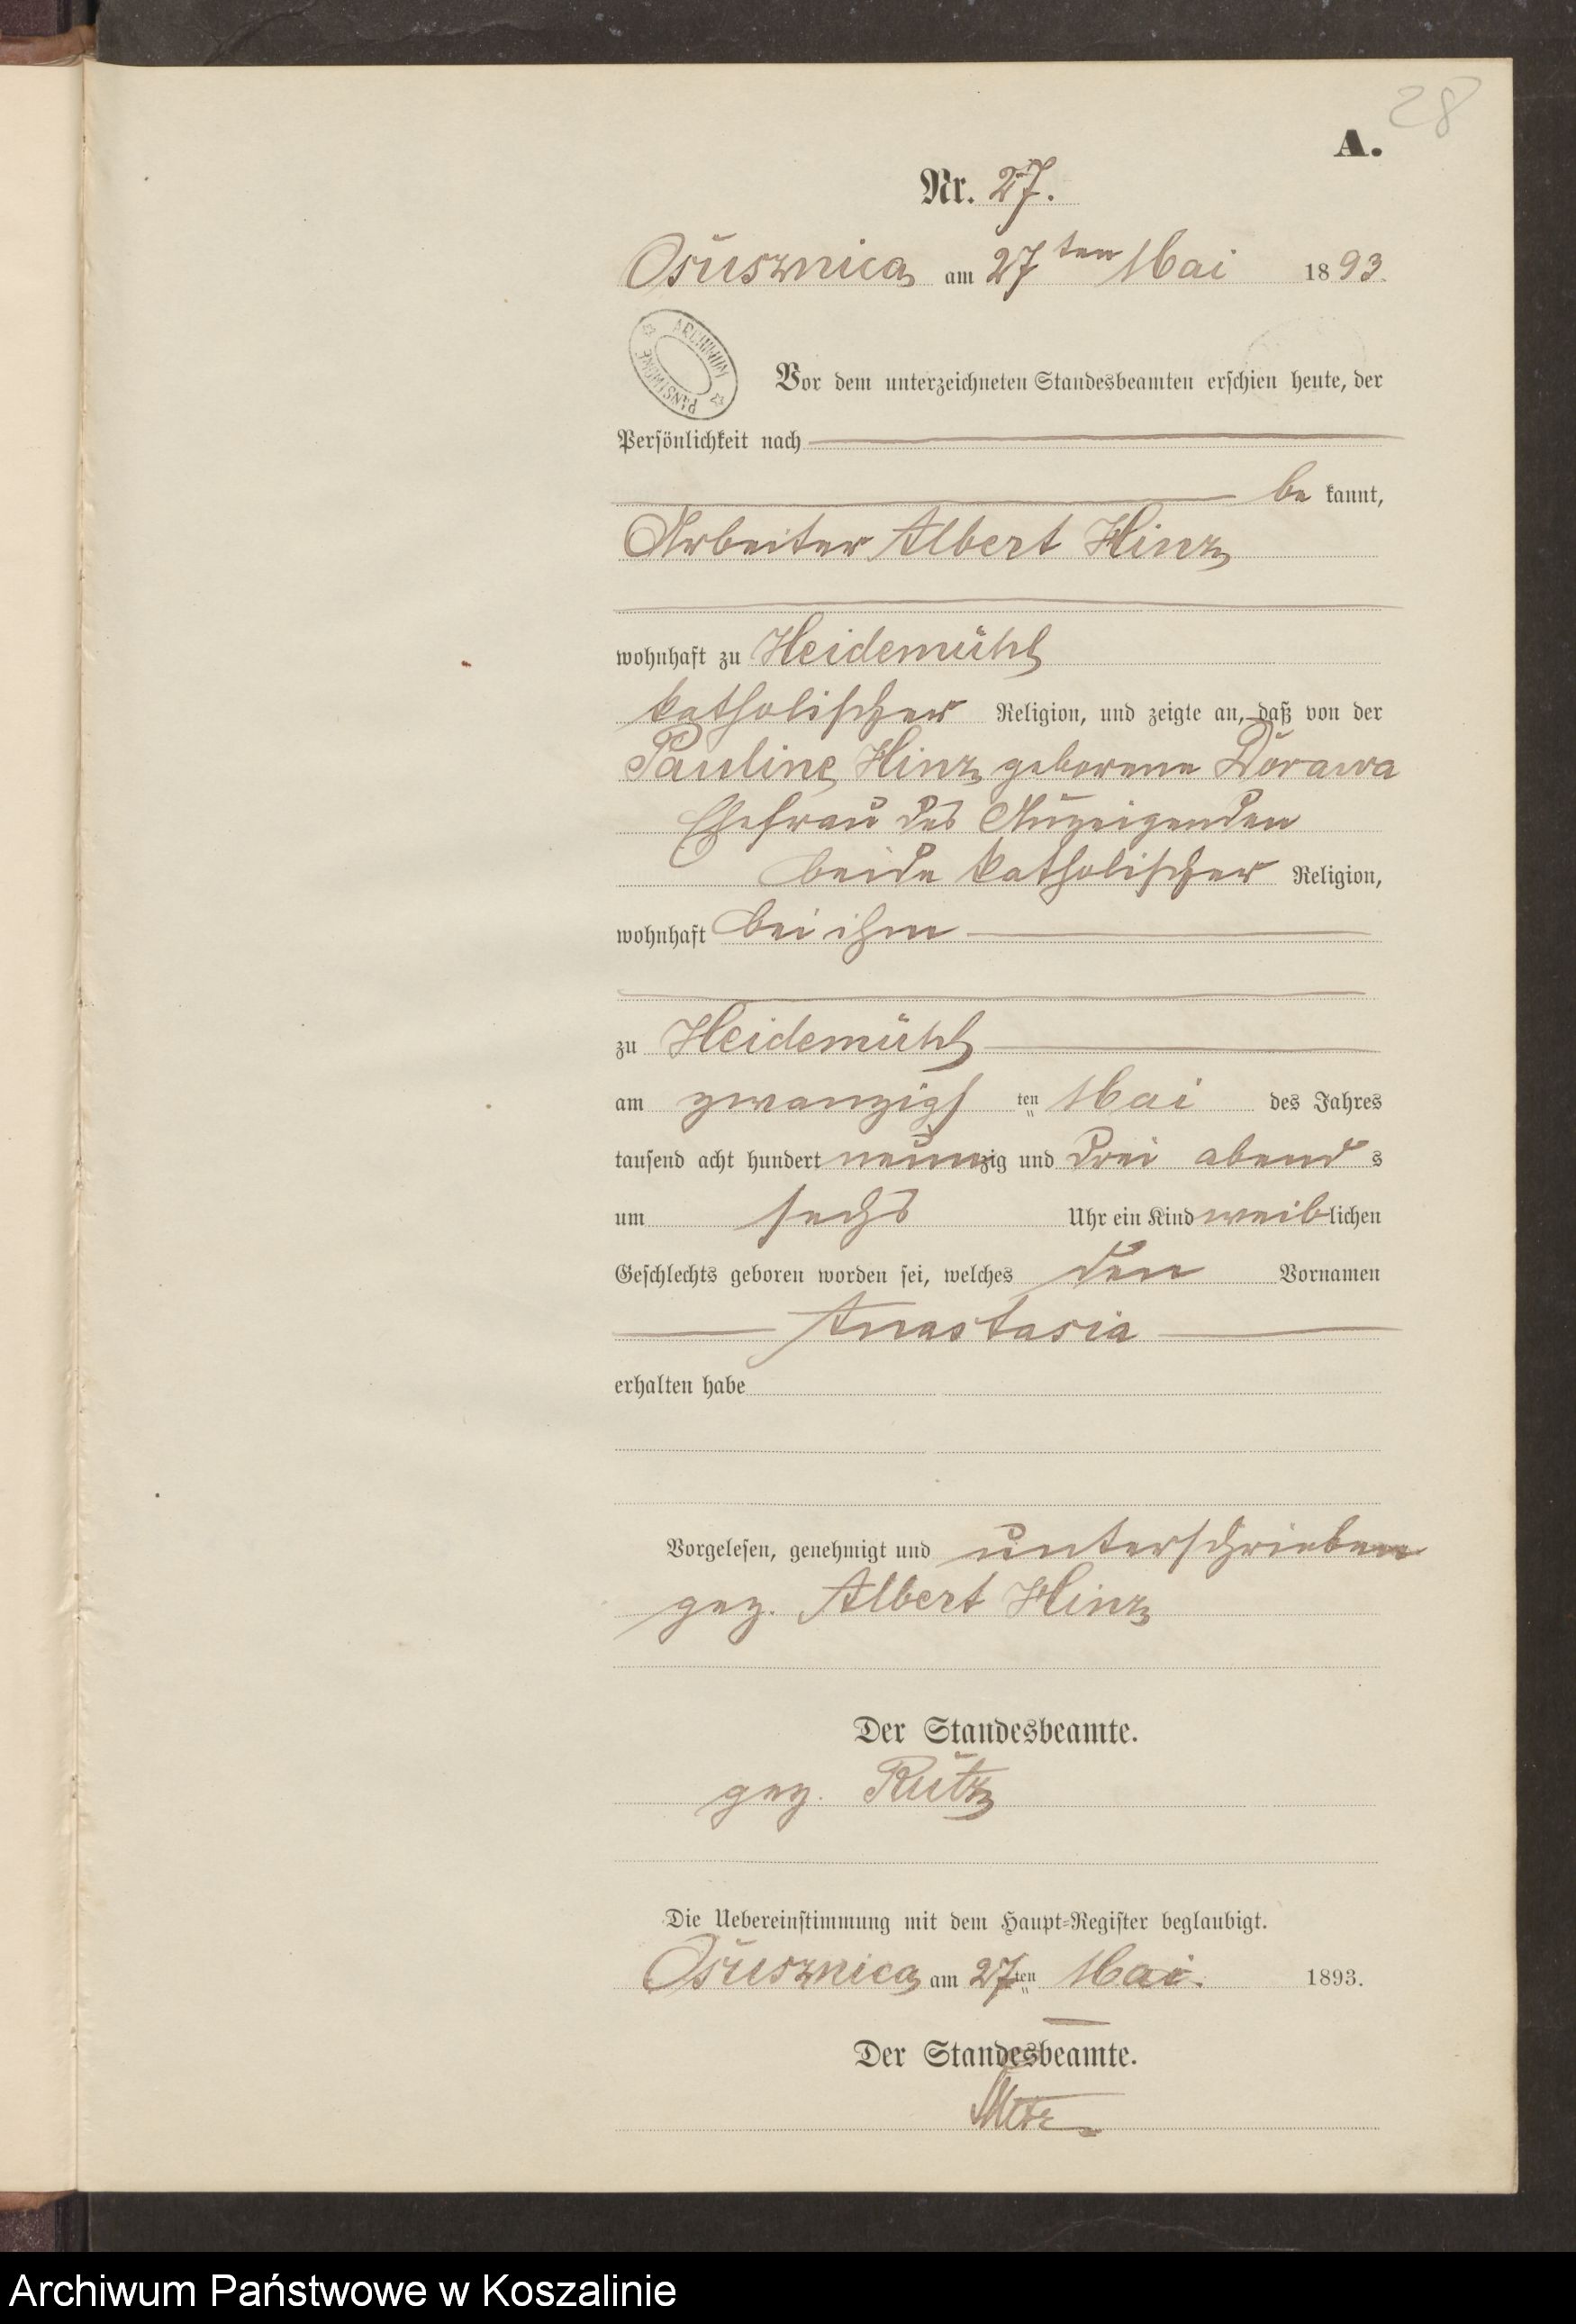 28
A.
Nr. 27.
Osusznica am 27ten Mai 1893.
ARCHIWUM PAŃSTWOWE
Vor dem unterzeichneten Standesbeamten erschien heute, der
Persönlichkeit nach
be kannt,
Arbeiter Albert Hinz
wohnhaft zu Heidemühl
katholischer Religion, und zeigte an, daß von der
Pauline Hinz geborene
Ehefrau des Anzeigenden
beide katholischer Religion,
wohnhaft bei ihm
zu Heidemühl
am zwanzigs ten Mai des Jahres
tausend acht hundert neunzig und drei abend s
um sechs Uhr ein Kind weiblichen
Geschlechts geboren worden sei, welches den Vornamen
Anastasia
erhalten habe
Vorgelesen, genehmigt und unterschrieben
gez. Albert Hinz
Der Standesbeamte.
gez. Rutz
Die Uebereinstimmung mit dem Haupt=Register beglaubigt.
Osusznica am 27ten Mai. 1893.
Der Standesbeamte.
Archiwum Państwowe w Koszalinie